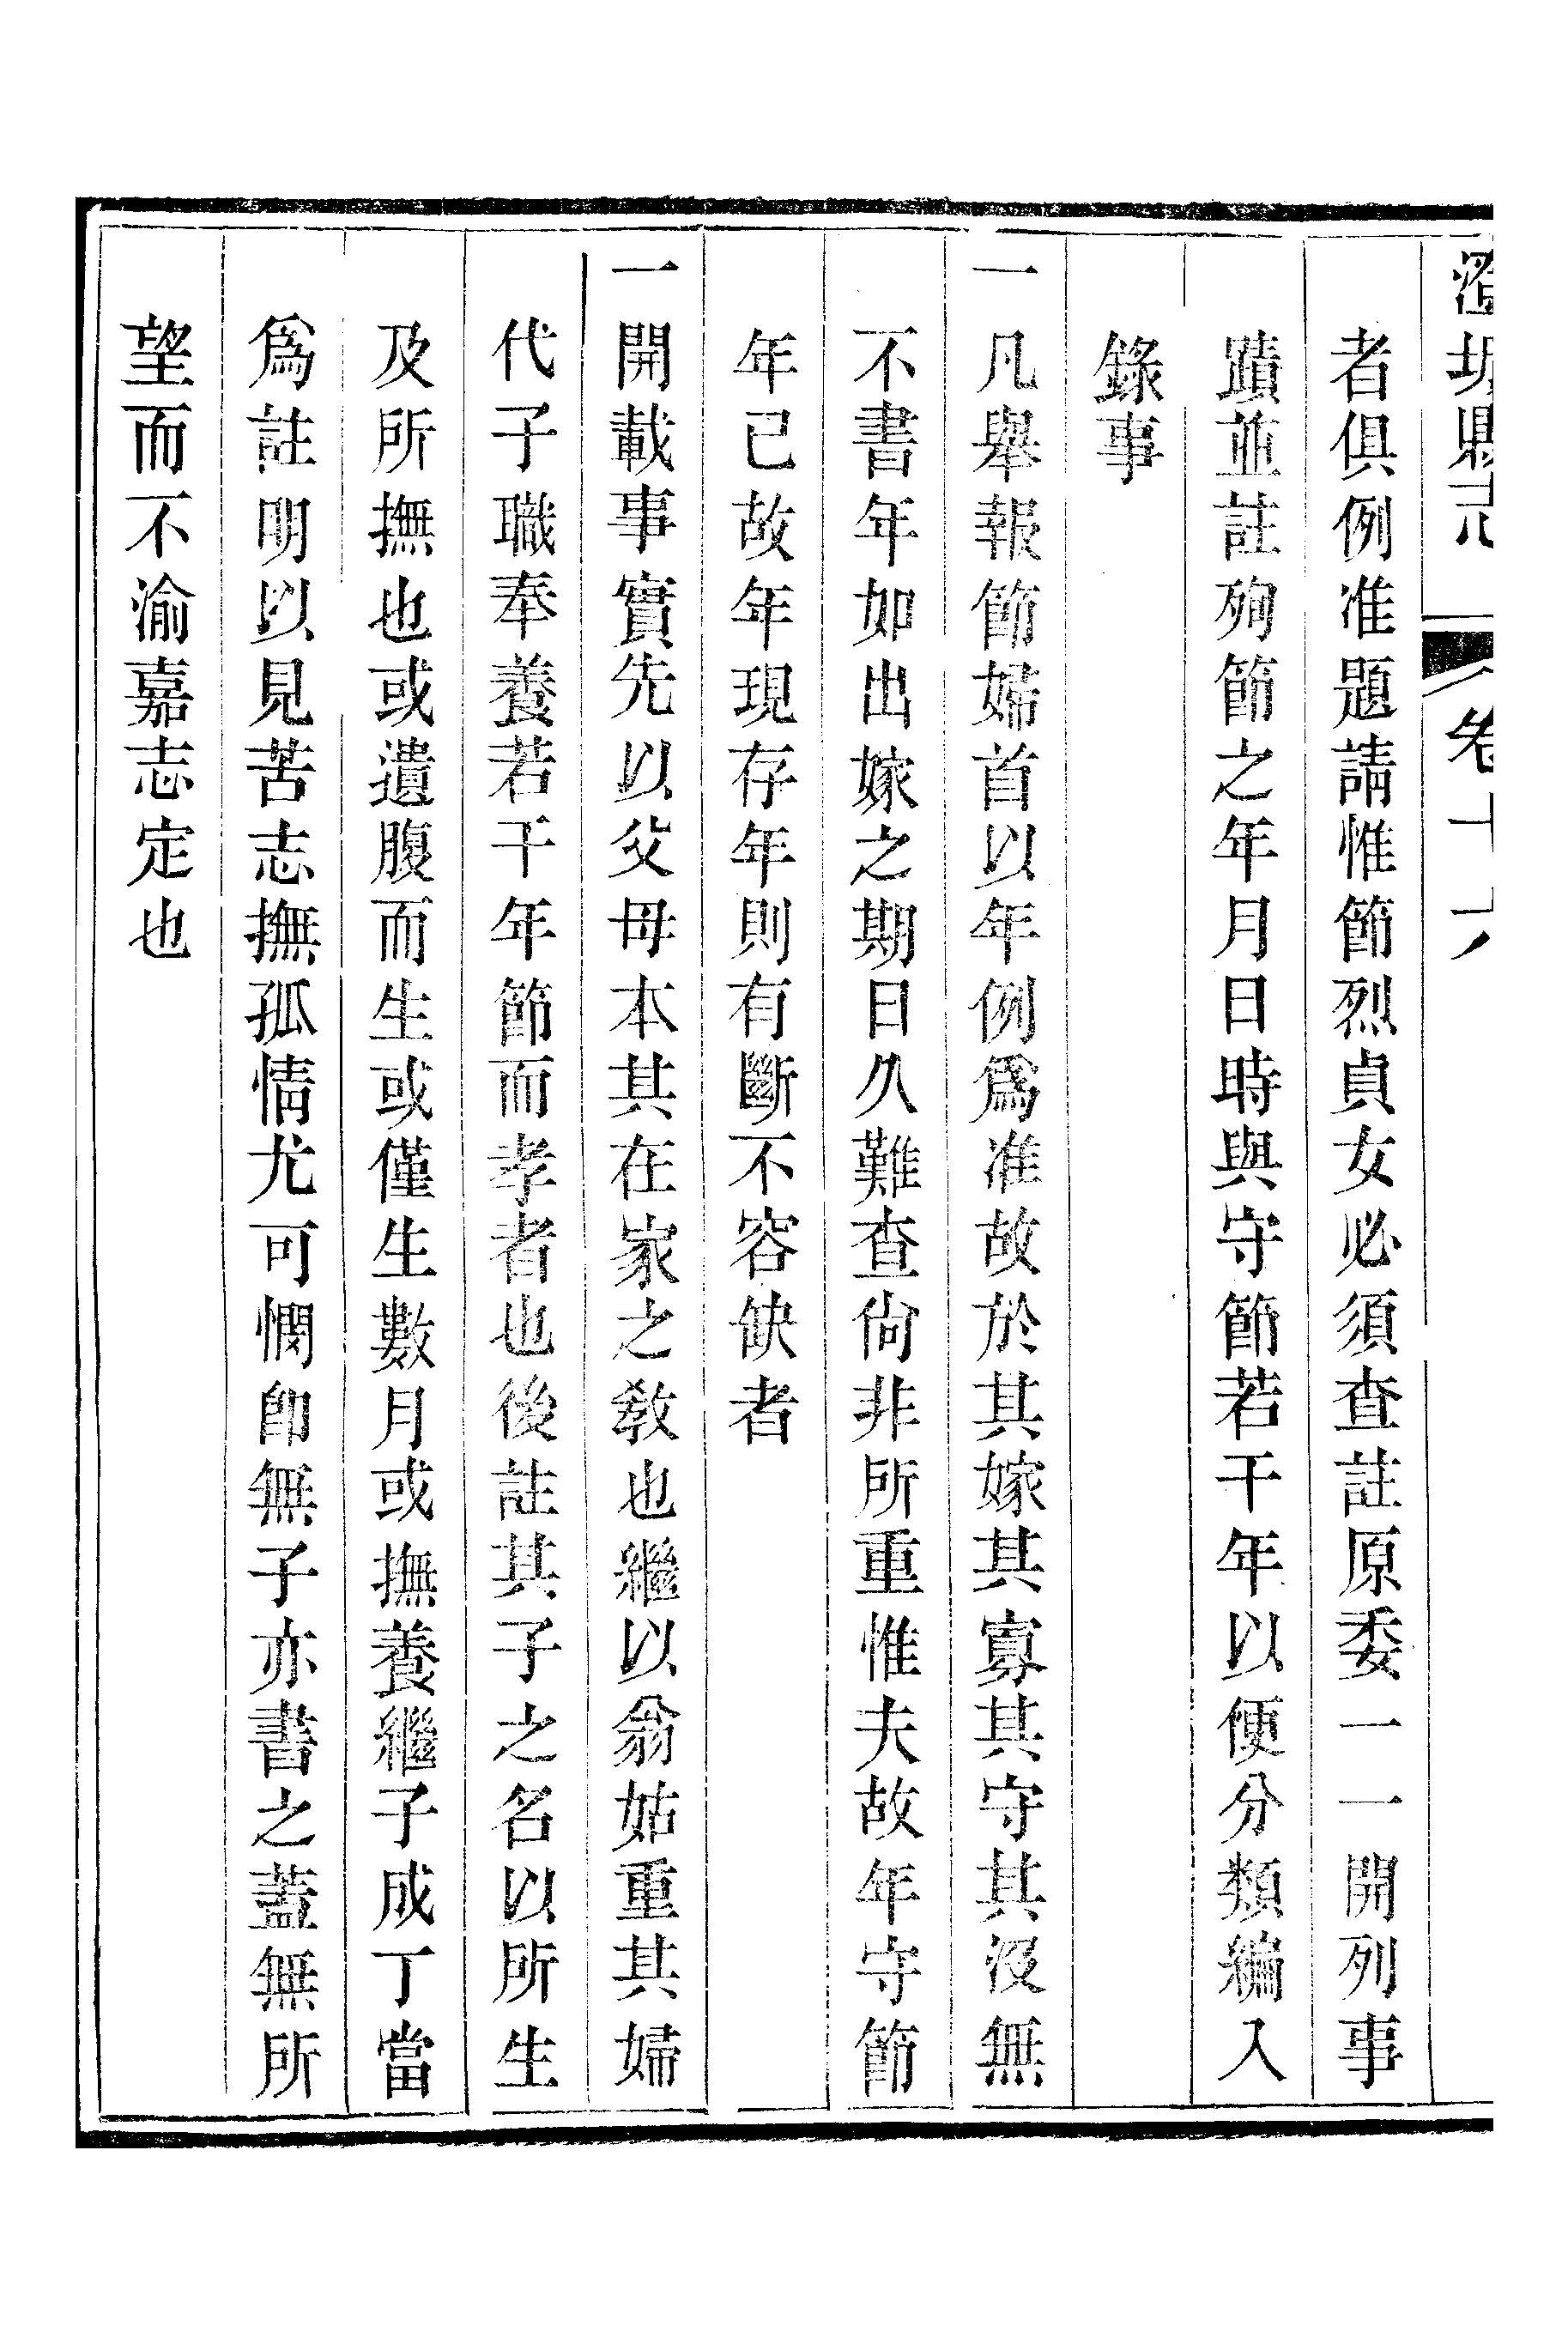 者俱例准題請惟節烈貞女必須查註原委一一開列事
蹟並註殉節之年月日時與守節若干年以便分類編入
錄事
一凡舉報節婦首以年例爲准故於其嫁其寡其守其沒無
不書年如出嫁之期日久難查尙非所重惟夫故年守節
年已故年現存年則有斷不容缺者
一開載事實先以父母本其在家之敎也繼以翁姑重其婦
代子職奉養若干年節而孝者也後註其子之名以所生
及所撫也或遺腹而生或僅生數月或撫養繼子成丁當
爲註明以見苦志撫孤情尤可憫卽無子亦書之蓋無所
望而不渝嘉志定也